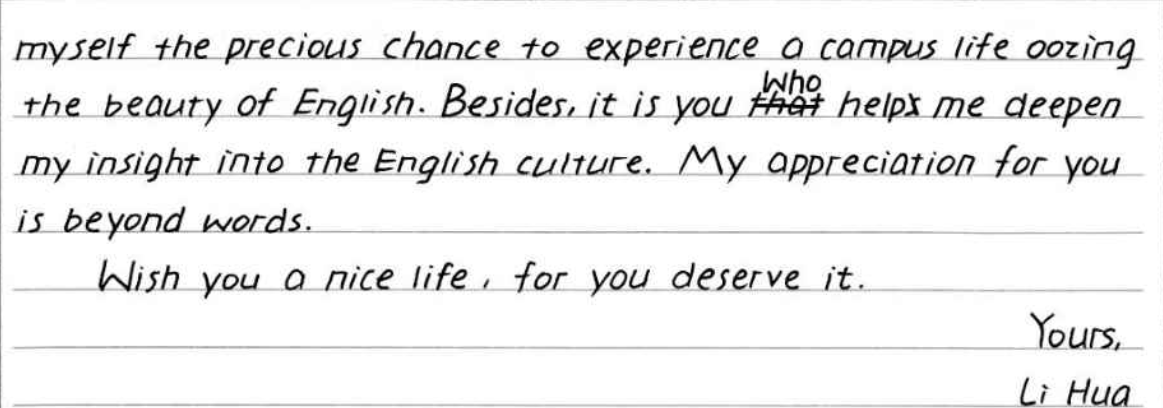 myself the precious chance to experience a campus life oozing
the beauty of English. Besides, it is you who help me deepen
my insight into the English culture. My appreciation for you
is beyond words.
Wish you a nice life, for you deserve it.
Yours,
Li Hua